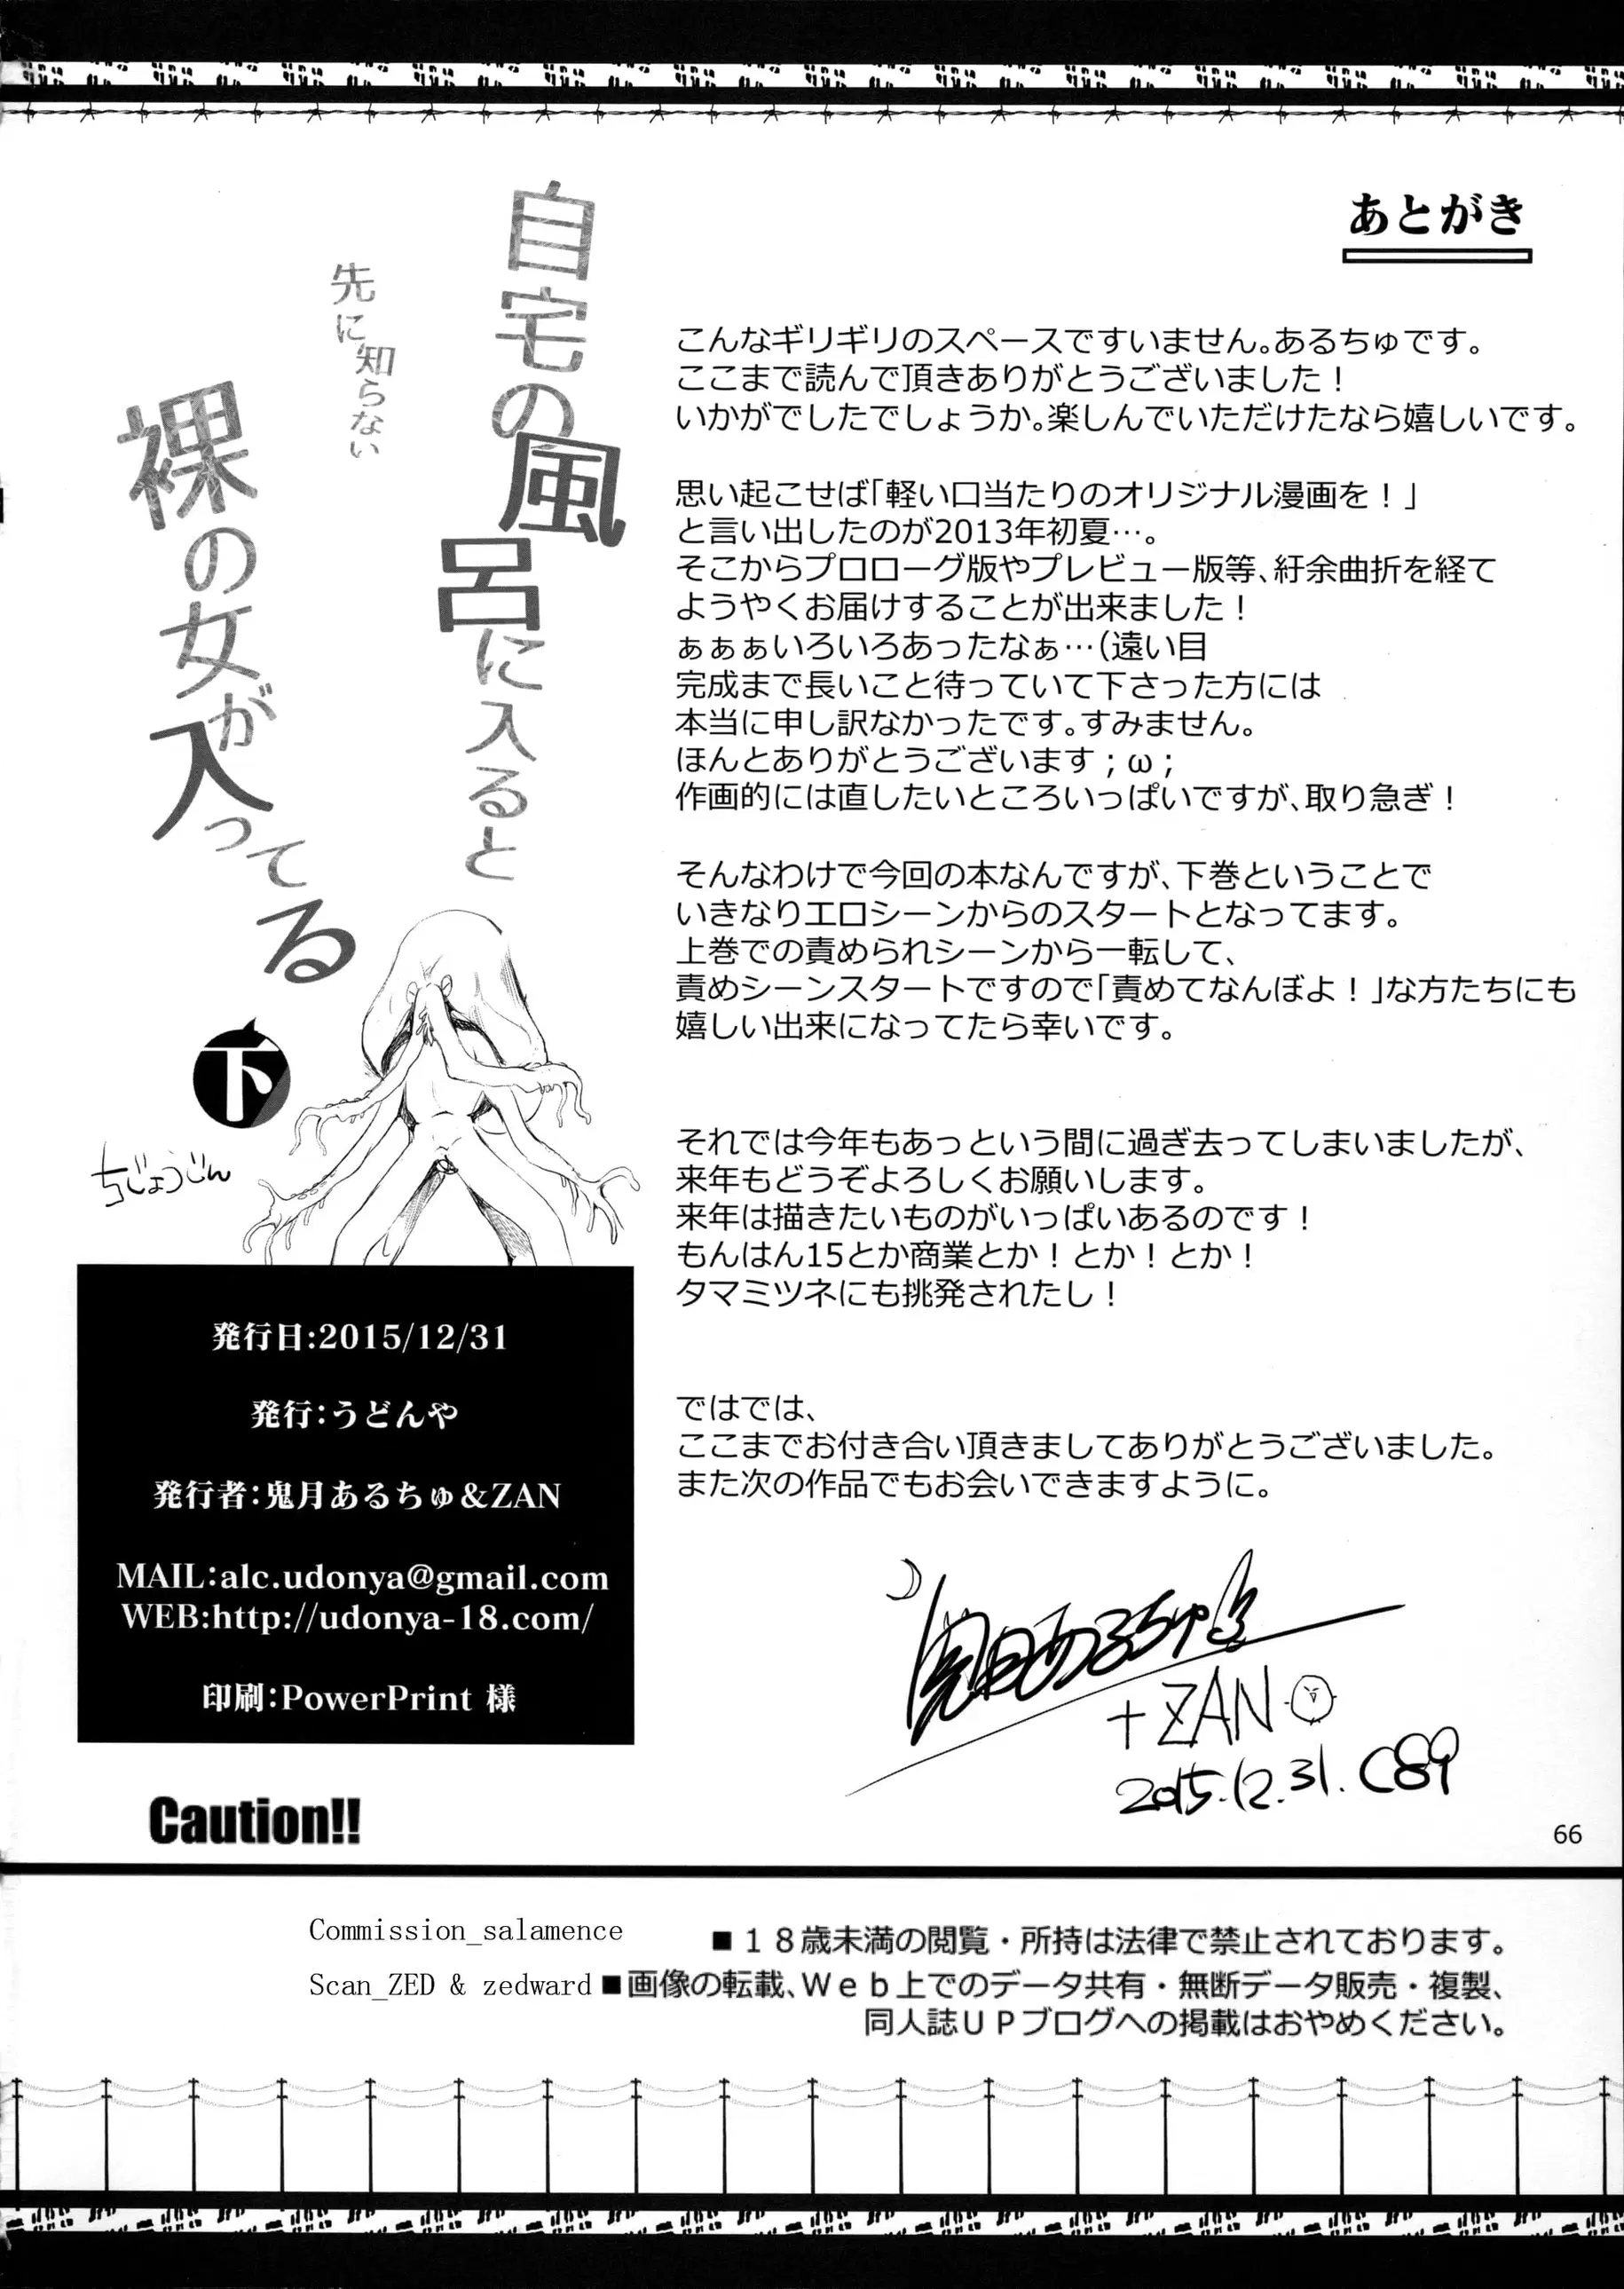 あとがき
こんなギリギリのスペースですいません。あるちゅです。
ここまで読んで頂きありがとうございました！
いかがでしたでしょうか。楽しんでいただけたなら嬉しいです。
思い起こせば「軽い口当たりのオリジナル漫画を！」
と言い出したのが2013年初夏…。
そこからプロローグ版やプレビュー版等、紆余曲折を経て
ようやくお届けすることが出来ました！
ぁぁぁいろいろあったなぁ…(遠い目
完成まで長いこと待っていて下さった方には
本当に申し訳なかったです。すみません。
ほんとありがとうございます；ω；
作画的には直したいところいっぱいですが、取り急ぎ！
そんなわけで今回の本なんですが、下巻ということで
いきなりエロシーンからのスタートとなってます。
上巻での責められシーンから一転して、
責めシーンスタートですので「責めてなんぼよ！」な方たちにも
嬉しい出来になってたら幸いです。
それでは今年もあっという間に過ぎ去ってしまいましたが、
来年もどうぞよろしくお願いします。
来年は描きたいものがいっぱいあるのです！
もんはん15とか商業とか！とか！とか！
タマミツネにも挑発されたし！
ではでは、
ここまでお付き合い頂きましてありがとうございました。
また次の作品でもお会いできますように。
鬼月あるちゅ
+ZAN
2015.12.31. C89
自宅の風呂に入ると
先に知らない
裸の女が入ってる
下
ちじょうじん
発行日:2015/12/31
発行:うどんや
発行者:鬼月あるちゅ&ZAN
MAIL:alc.udonya@gmail.com
WEB:http://udonya-18.com/
印刷:PowerPrint 様
Caution!!
66
Commission_salamence
Scan_ZED & zedward
■１８歳未満の閲覧・所持は法律で禁止されております。
■画像の転載、Ｗｅｂ上でのデータ共有・無断データ販売・複製、
同人誌ＵＰブログへの掲載はおやめください。